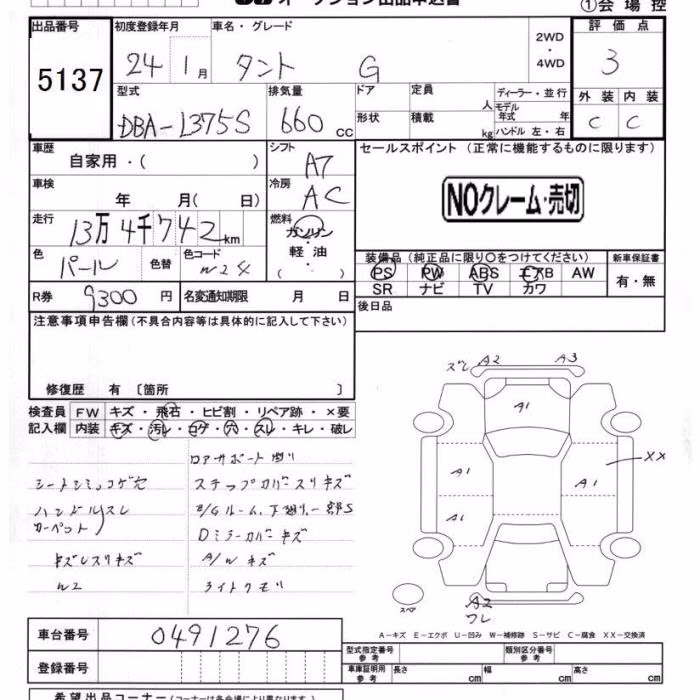 オークション出品申込書 ①会場控
出品番号 初度登録年月 車名・グレード 2WD・4WD 評価点
5137 24 1月 タント G 3
型式 排気量 ドア 定員 人 ディーラー・並行 外装 内装
DBA-L375S 660cc 形状 積載 kg モデル年式 年 ハンドル 左・右 C C
車歴 自家用・( ) シフト AT セールスポイント (正常に機能するものに限ります)
車検 年 月( 日) 冷房 AC NOクレーム・売切
走行 13万4千742km 燃料 ガソリン 軽油 ( ・ )
色 パール 色替 色コード W24 装備品 (純正品に限り○をつけてください) 新車保証書
PS PW ABS エアB AW 有・無
SR ナビ TV カワ
R券 9300円 名変通知期限 月 日 後日品
注意事項申告欄(不具合内容等は具体的に記入して下さい)
修復歴 有 〔箇所 〕
検査員 FW キズ・飛石・ヒビ割・リペア跡・×要
記入欄 内装 キズ・汚レ・コゲ・穴・スレ・キレ・破レ
シートシミ
ステップカバースリキズ
ハンドルスレ
カーペット
Dミラーカバーキズ
A/Wキズ
W2
ライトクモリ
ズレ A2 A3
A1
A1 A1 XX
A1
スペア
A2
フレ
A-キズ E-エクボ U-凹み W-補修跡 S-サビ C-腐食 XX-交換済
車台番号 0491276
登録番号
型式指定番号 参考 類別区分番号 参考
車庫証明用 参考 長さ cm 幅 cm 高さ cm
希望出品コーナー(コーナーは各会場により異なります)